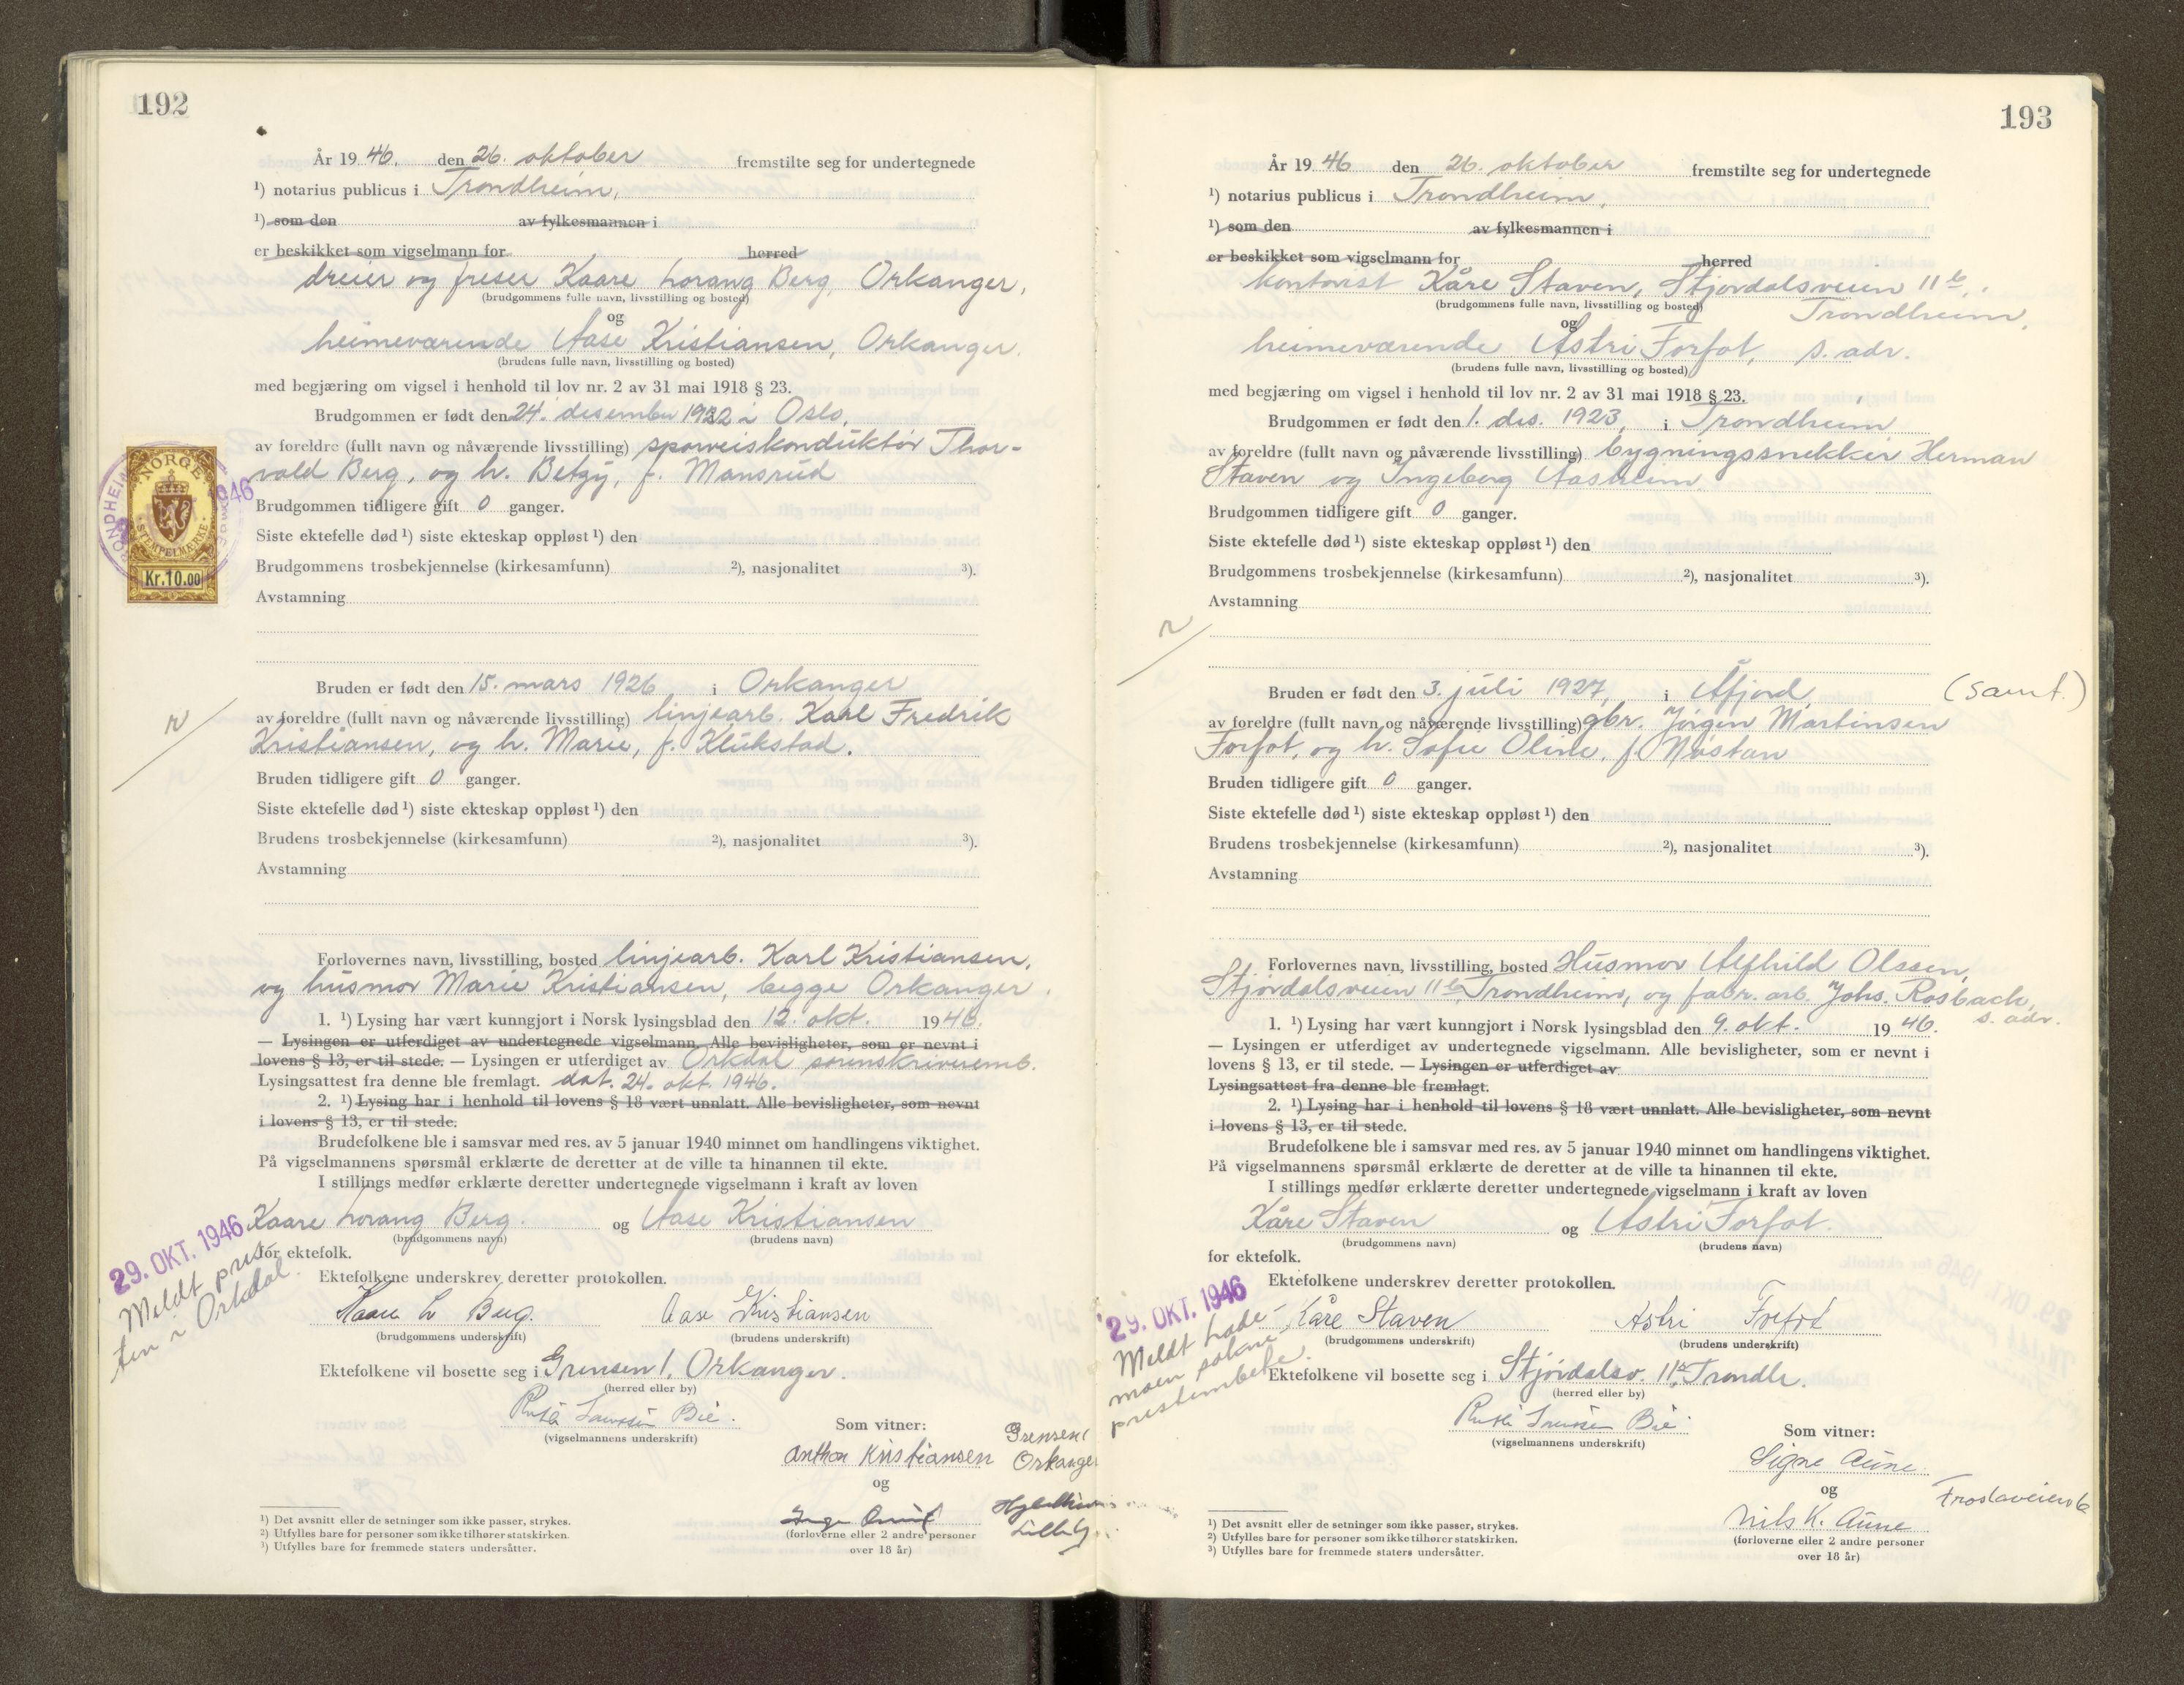 192
År 19 46. den 26. oktober fremstilte seg for undertegnede
¹) notarius publicus i Trondheim,
¹) som den av fylkesmannen i
er beskikket som vigselmann for herred
dreier og freser Kaare Lorang Berg, Orkanger,
(brudgommens fulle navn, livsstilling og bosted)
og
heimeværende Aase Kristiansen, Orkanger.
(brudens fulle navn, livsstilling og bosted)
med begjæring om vigsel i henhold til lov nr. 2 av 31 mai 1918 § 23.
Brudgommen er født den 24. desember 1922 i Oslo,
av foreldre (fullt navn og nåværende livsstilling) sporveiskonduktør Thor-
vald Berg, og h. Betzy, f. Mansrud
NORGE
STEMPELMERKE
Kr.10.00
Brudgommen tidligere gift 0 ganger.
Siste ektefelle død ¹) siste ekteskap oppløst ¹) den
Brudgommens trosbekjennelse (kirkesamfunn) ²), nasjonalitet ³).
Avstamning
Bruden er født den 15. mars 1926 i Orkanger
av foreldre (fullt navn og nåværende livsstilling) linjearb. Karl Fredrik
Kristiansen, og h. Marie, f. Klukstad.
Bruden tidligere gift 0 ganger.
Siste ektefelle død ¹) siste ekteskap oppløst ¹) den
Brudens trosbekjennelse (kirkesamfunn) ²), nasjonalitet ³).
Avstamning
Forlovernes navn, livsstilling, bosted linjearb. Karl Kristiansen,
og husmor Marie Kristiansen, begge Orkanger.
1. ¹) Lysing har vært kunngjort i Norsk lysingsblad den 12. okt. 1946.
— Lysingen er utferdiget av undertegnede vigselmann. Alle bevisligheter, som er nevnt i
lovens § 13, er til stede. — Lysingen er utferdiget av Orkdal sorenskriveremb.
Lysingsattest fra denne ble fremlagt. dat. 24. okt. 1946.
2. ¹) Lysing har i henhold til lovens § 18 vært unnlatt. Alle bevisligheter, som nevnt
i lovens § 13, er til stede.
Brudefolkene ble i samsvar med res. av 5 januar 1940 minnet om handlingens viktighet.
På vigselmannens spørsmål erklærte de deretter at de ville ta hinannen til ekte.
I stillings medfør erklærte deretter undertegnede vigselmann i kraft av loven
Kaare Lorang Berg. og Aase Kristiansen
(brudgommens navn) (brudens navn)
for ektefolk.
29. OKT. 1946
Meldt pres-
ten i Orkdal.
Ektefolkene underskrev deretter protokollen.
Kaare L Berg. Aase Kristiansen
(brudgommens underskrift) (brudens underskrift)
Ektefolkene vil bosette seg i Grensen 1, Orkanger.
(herred eller by)
(vigselmannens underskrift)
Som vitner:
Anthon Kristiansen Grensen 1
Orkanger
og
(forloverne eller 2 andre personer
over 18 år)
¹) Det avsnitt eller de setninger som ikke passer, strykes.
²) Utfylles bare for personer som ikke tilhører statskirken.
³) Utfylles bare for fremmede staters undersåtter.
193
År 19 46 den 26. oktober fremstilte seg for undertegnede
¹) notarius publicus i Trondheim,
¹) som den av fylkesmannen i
er beskikket som vigselmann for herred
kontorist Kåre Staven, Stjørdalsveien 11 b,
(brudgommens fulle navn, livsstilling og bosted) Trondheim,
og
heimeværende Astri Forfot, s. adr.
(brudens fulle navn, livsstilling og bosted)
med begjæring om vigsel i henhold til lov nr. 2 av 31 mai 1918 § 23.
Brudgommen er født den 1. des. 1923, i Trondheim
av foreldre (fullt navn og nåværende livsstilling) bygningssnekker Herman
Staven og Ingeborg Aasheim
Brudgommen tidligere gift 0 ganger.
Siste ektefelle død ¹) siste ekteskap oppløst ¹) den
Brudgommens trosbekjennelse (kirkesamfunn) ²), nasjonalitet ³).
Avstamning
Bruden er født den 3. juli 1927, i Åfjord, (samt.)
av foreldre (fullt navn og nåværende livsstilling) gbr. Jørgen Martinsen
Forfot, og h. Sofie Oline, f. Nøstan
Bruden tidligere gift 0 ganger.
Siste ektefelle død ¹) siste ekteskap oppløst ¹) den
Brudens trosbekjennelse (kirkesamfunn) ²), nasjonalitet ³).
Avstamning
Forlovernes navn, livsstilling, bosted Husmor Alfhild Olssen,
Stjørdalsveien 11 b, Trondheim, og fabr. arb. Johs. Rosbach,
s. adr.
1. ¹) Lysing har vært kunngjort i Norsk lysingsblad den 9. okt. 1946.
— Lysingen er utferdiget av undertegnede vigselmann. Alle bevisligheter, som er nevnt i
lovens § 13, er til stede. — Lysingen er utferdiget av
Lysingsattest fra denne ble fremlagt.
2. ¹) Lysing har i henhold til lovens § 18 vært unnlatt. Alle bevisligheter, som nevnt
i lovens § 13, er til stede.
Brudefolkene ble i samsvar med res. av 5 januar 1940 minnet om handlingens viktighet.
På vigselmannens spørsmål erklærte de deretter at de ville ta hinannen til ekte.
I stillings medfør erklærte deretter undertegnede vigselmann i kraft av loven
Kåre Staven og Astri Forfot.
(brudgommens navn) (brudens navn)
for ektefolk.
29. OKT. 1946
Meldt Lade-
moen sokne-
prestembete.
Ektefolkene underskrev deretter protokollen.
Kåre Staven Astri Forfot
(brudgommens underskrift) (brudens underskrift)
Ektefolkene vil bosette seg i Stjørdalsv. 11 b, Trondh.
(herred eller by)
(vigselmannens underskrift)
Som vitner:
Signe Aune
og
Frostaveien 6
Nils K. Aune
(forloverne eller 2 andre personer
over 18 år)
¹) Det avsnitt eller de setninger som ikke passer, strykes.
²) Utfylles bare for personer som ikke tilhører statskirken.
³) Utfylles bare for fremmede staters undersåtter.